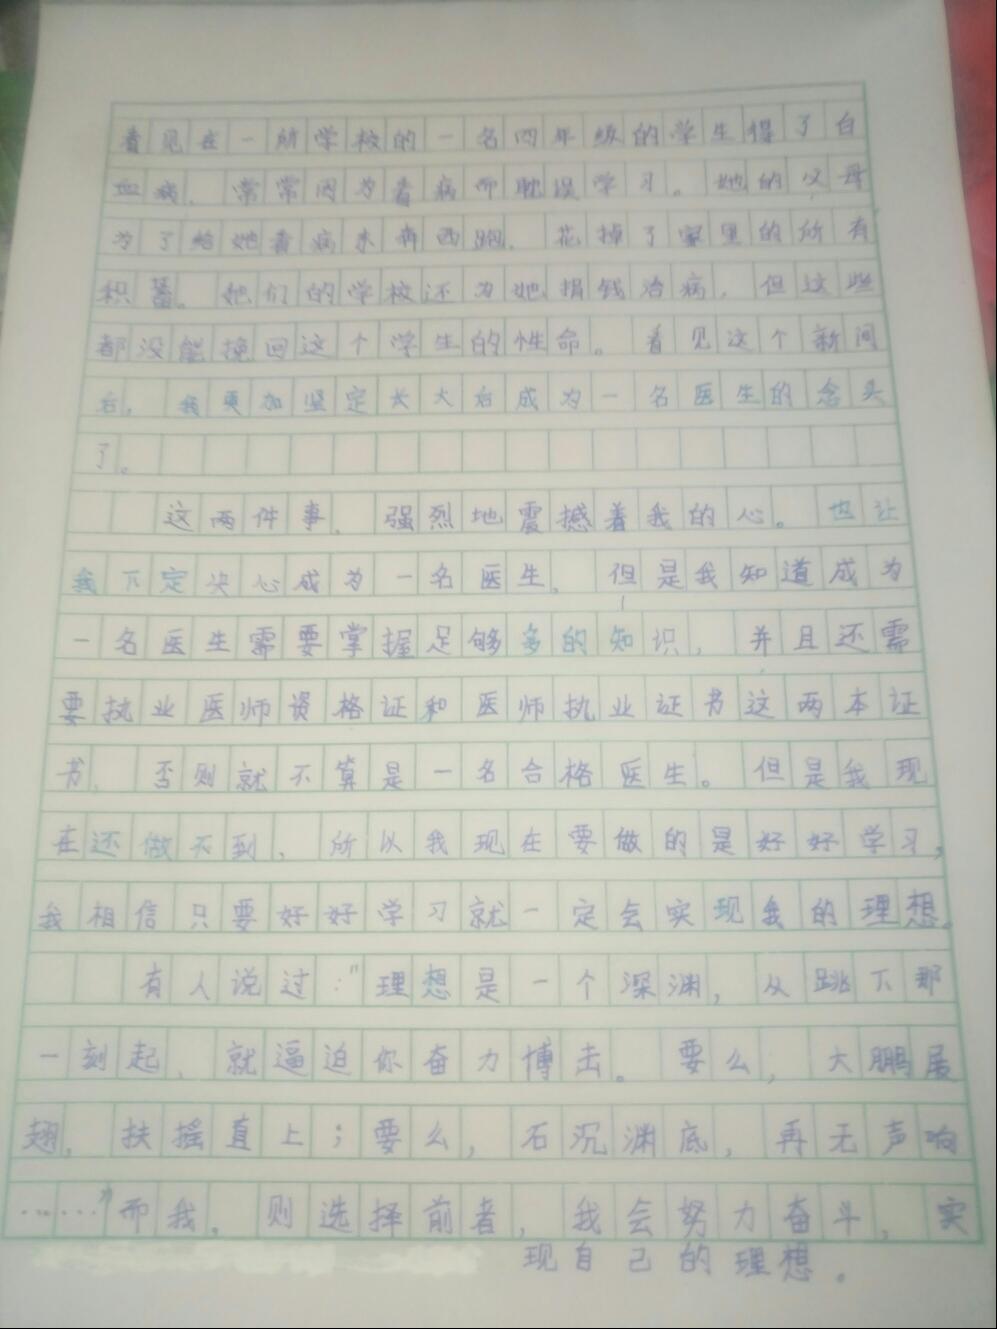 看见在一所学校的一名四年级的学生得了白
血病，常常因为看病而耽误学习。她的父母
为了给她看病东奔西跑，花掉了家里的所有
积蓄。她们的学校还为她捐钱治病，但这些
都没能挽回这个学生的性命。看见这个新闻
后，我更加坚定长大后成为一名医生的念头
了。
这两件事，强烈地震撼着我的心。也让
我下定决心成为一名医生，但是我知道成为
一名医生需要掌握足够多的知识，并且还需
要执业医师资格证和医师执业证书这两本证
书，否则就不算是一名合格医生。但是我现
在还做不到，所以我现在要做的是好好学习，
我相信只要好好学习就一定会实现我的理想。
有人说过："理想是一个深渊，从跳下那
一刻起，就逼迫你奋力博击。要么，大鹏展
翅，扶摇直上；要么，石沉渊底，再无声响
……"而我，则选择前者，我会努力奋斗，实
现自己的理想。